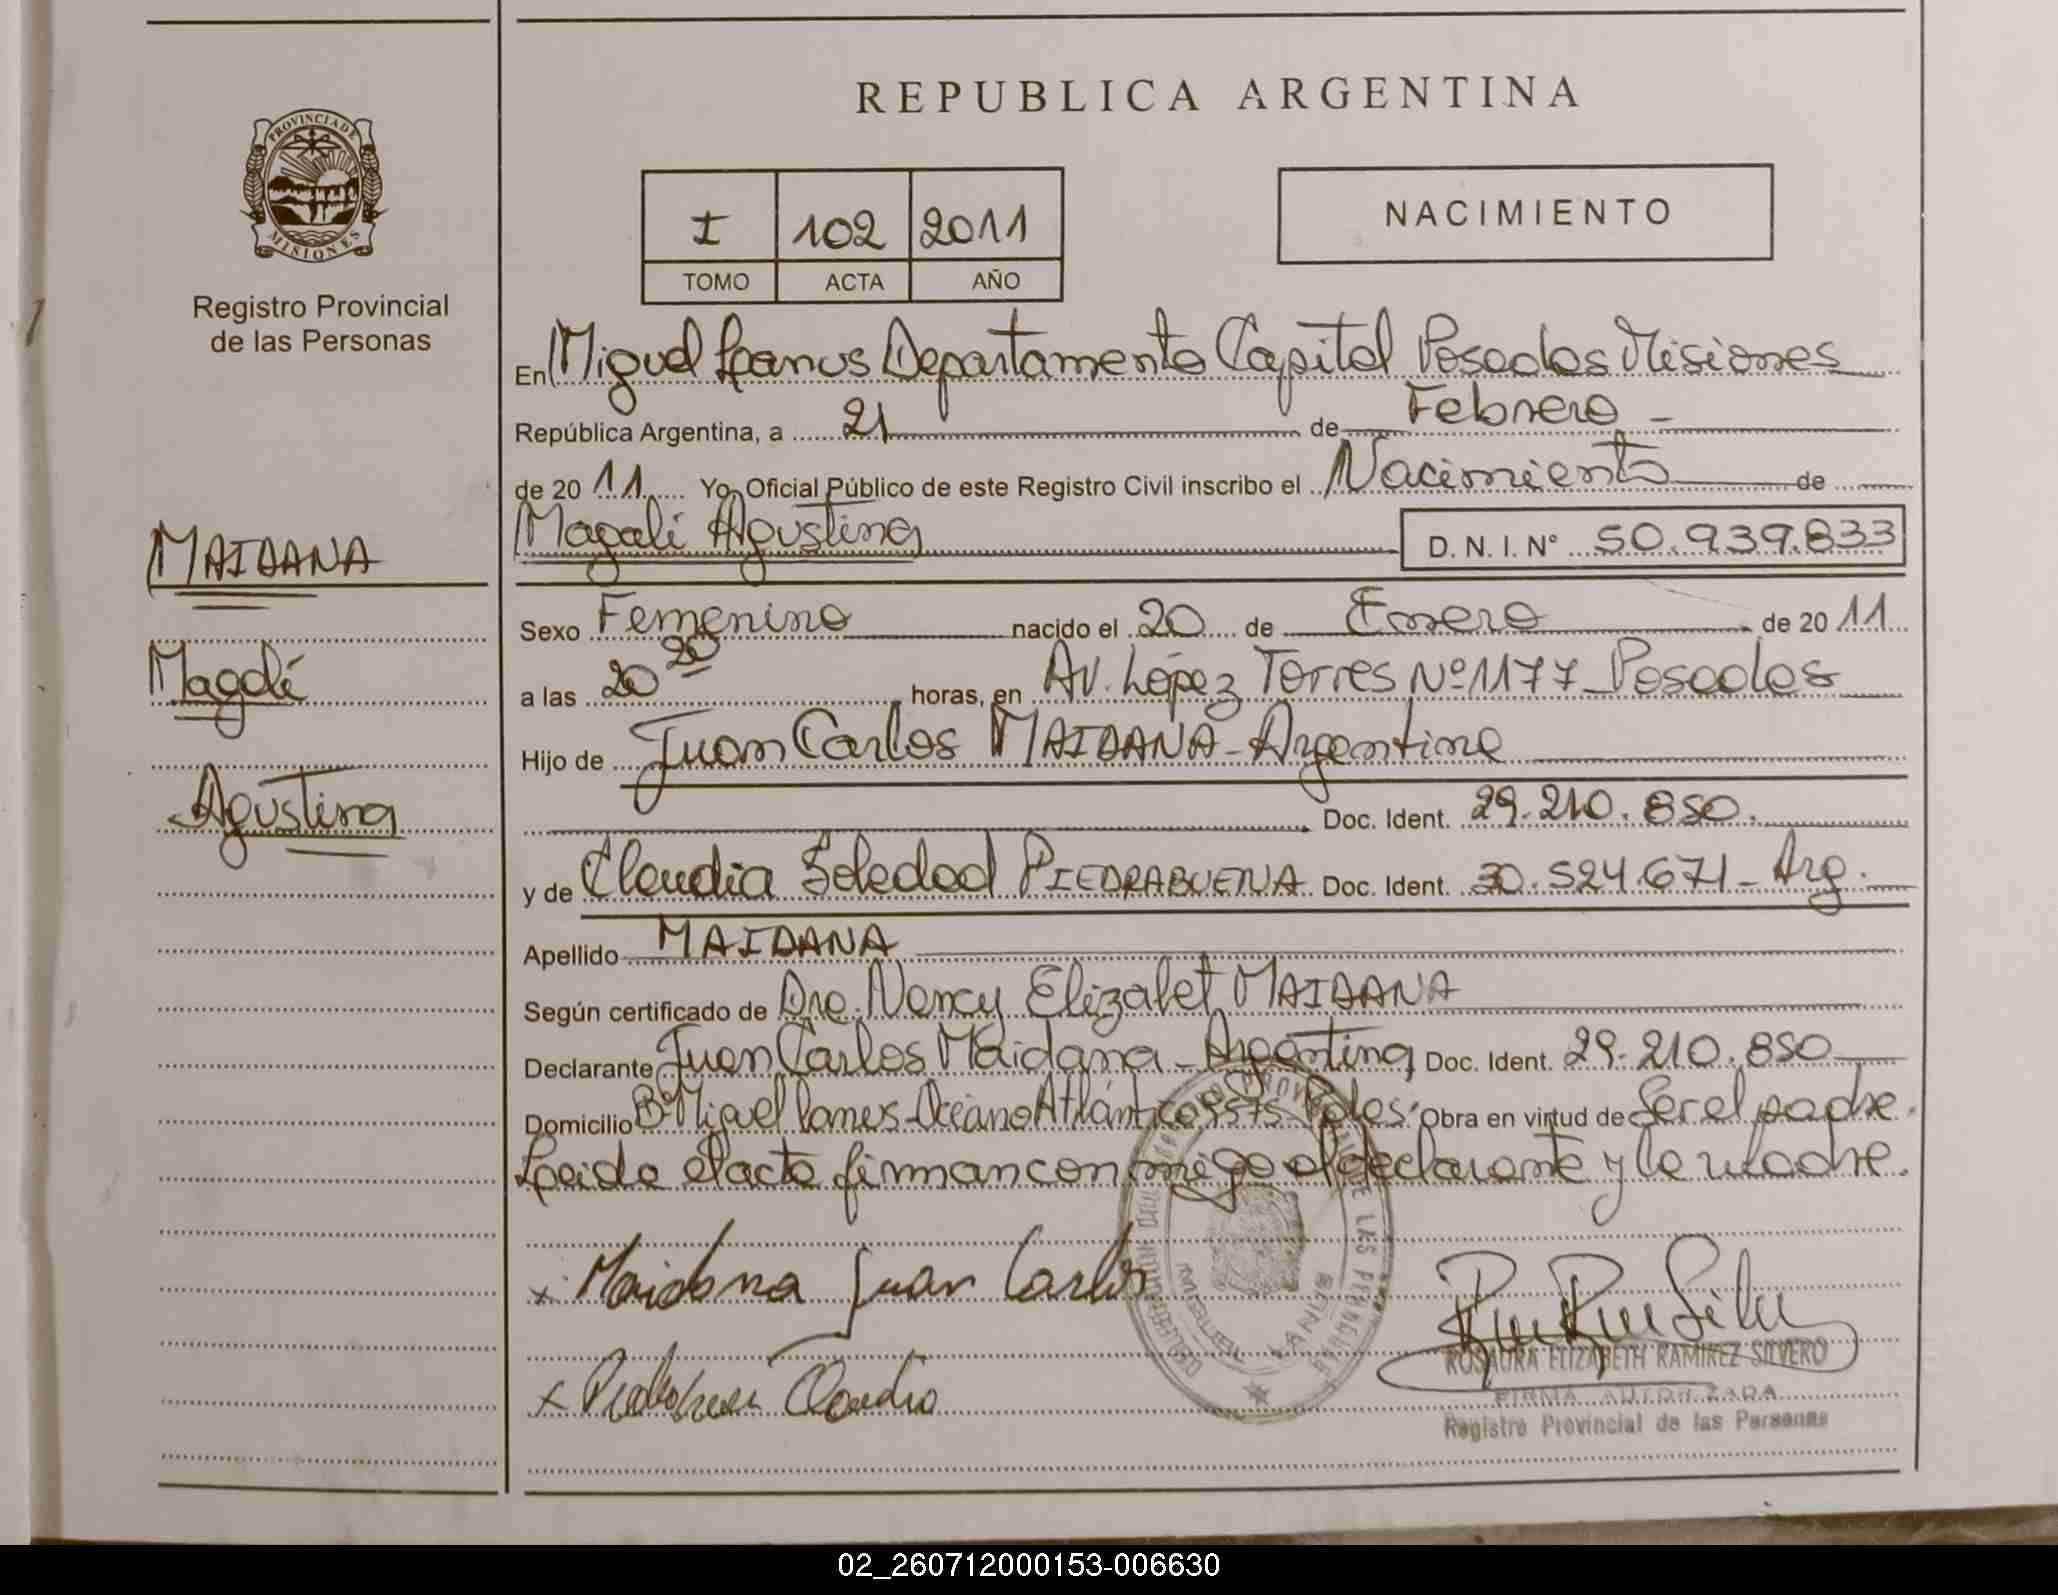 REPUBLICA ARGENTINA
PROVINCIA DE
MISIONES
Registro Provincial
de las Personas
I 102 2011
TOMO ACTA AÑO
NACIMIENTO
En Miguel Lanus Departamento Capital Posadas Misiones
República Argentina, a 21 de Febrero
de 20 11 Yo, Oficial Público de este Registro Civil inscribo el Nacimiento de
Magali Agustina D. N. I. Nº 50.939.833
MAIDANA
Magali
Agustina
Sexo Femenino nacido el 20 de Enero de 20 11
a las 20 20 horas, en Av. López Torres Nº 1177 Posadas
Hijo de Juan Carlos MAIDANA - Argentino
Doc. Ident. 29.210.850.
y de Claudia Soledad PIEDRABUENA Doc. Ident. 30.524.671 - Arg.
Apellido MAIDANA
Según certificado de Dra. Nancy Elizabet MAIDANA
Declarante Juan Carlos Maidana - Argentino Doc. Ident. 29.210.850
Domicilio Bº Miguel Lanus - Océano Atlántico Pdas. Obra en virtud de Ser el padre.
Leida el acta firman conmigo el declarante y la madre.
x Maidana Juan Carlos
x Claudia
MIGUEL LANUS
ROSAURA ELIZABETH RAMIREZ SILVERO
FIRMA AUTORIZADA
Registro Provincial de las Personas
02_260712000153-006630